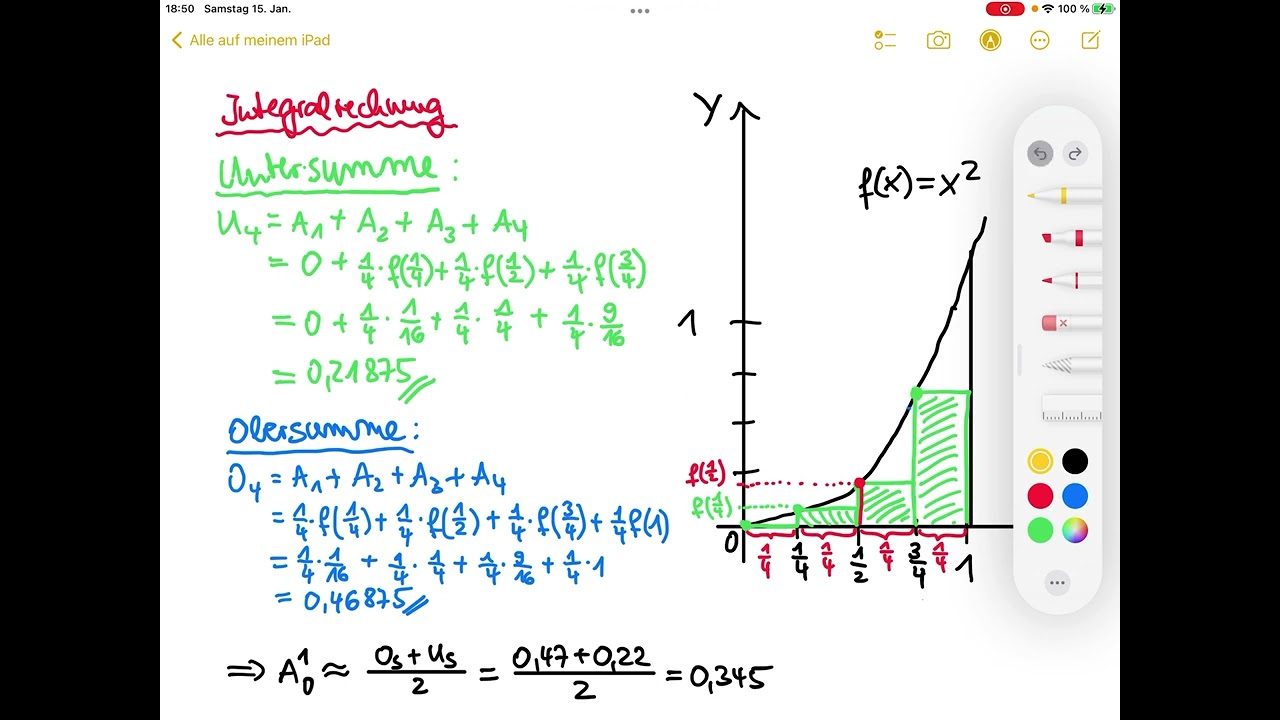 18:50 Samstag 15. Jan.
100 %
Alle auf meinem iPad
Integralrechnung
Untersumme:
U₄ = A₁ + A₂ + A₃ + A₄
= 0 + 1/4 · f(1/4) + 1/4 · f(1/2) + 1/4 · f(3/4)
= 0 + 1/4 · 1/16 + 1/4 · 1/4 + 1/4 · 9/16
= 0,21875
Obersumme:
O₄ = A₁ + A₂ + A₃ + A₄
= 1/4 · f(1/4) + 1/4 · f(1/2) + 1/4 · f(3/4) + 1/4 f(1)
= 1/4 · 1/16 + 1/4 · 1/4 + 1/4 · 9/16 + 1/4 · 1
= 0,46875
⇒ A₀¹ ≈ (O₅ + U₅)/2 = (0,47 + 0,22)/2 = 0,345
y
f(x) = x²
1
f(1/2)
f(1/4)
1/4 1/4 1/4 1/4
0 1/4 1/2 3/4 1